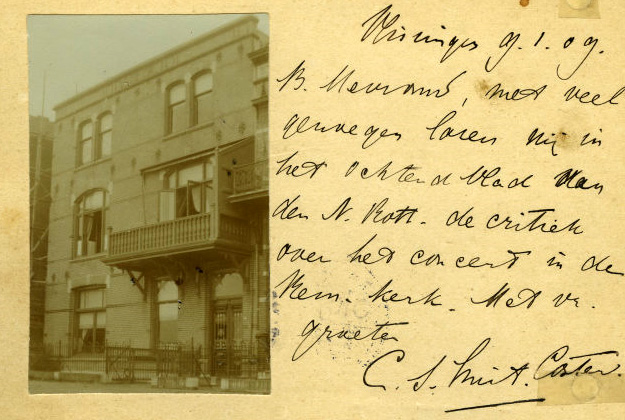 Vlissingen 9.1.09.
B. Mevrouw, met veel
genoegen lazen wij in
het ochtendblad van
den N. Rott. de critiek
over het concert in de
Rem. kerk. Met vr.
groeten
C. S. Smit. Coster.